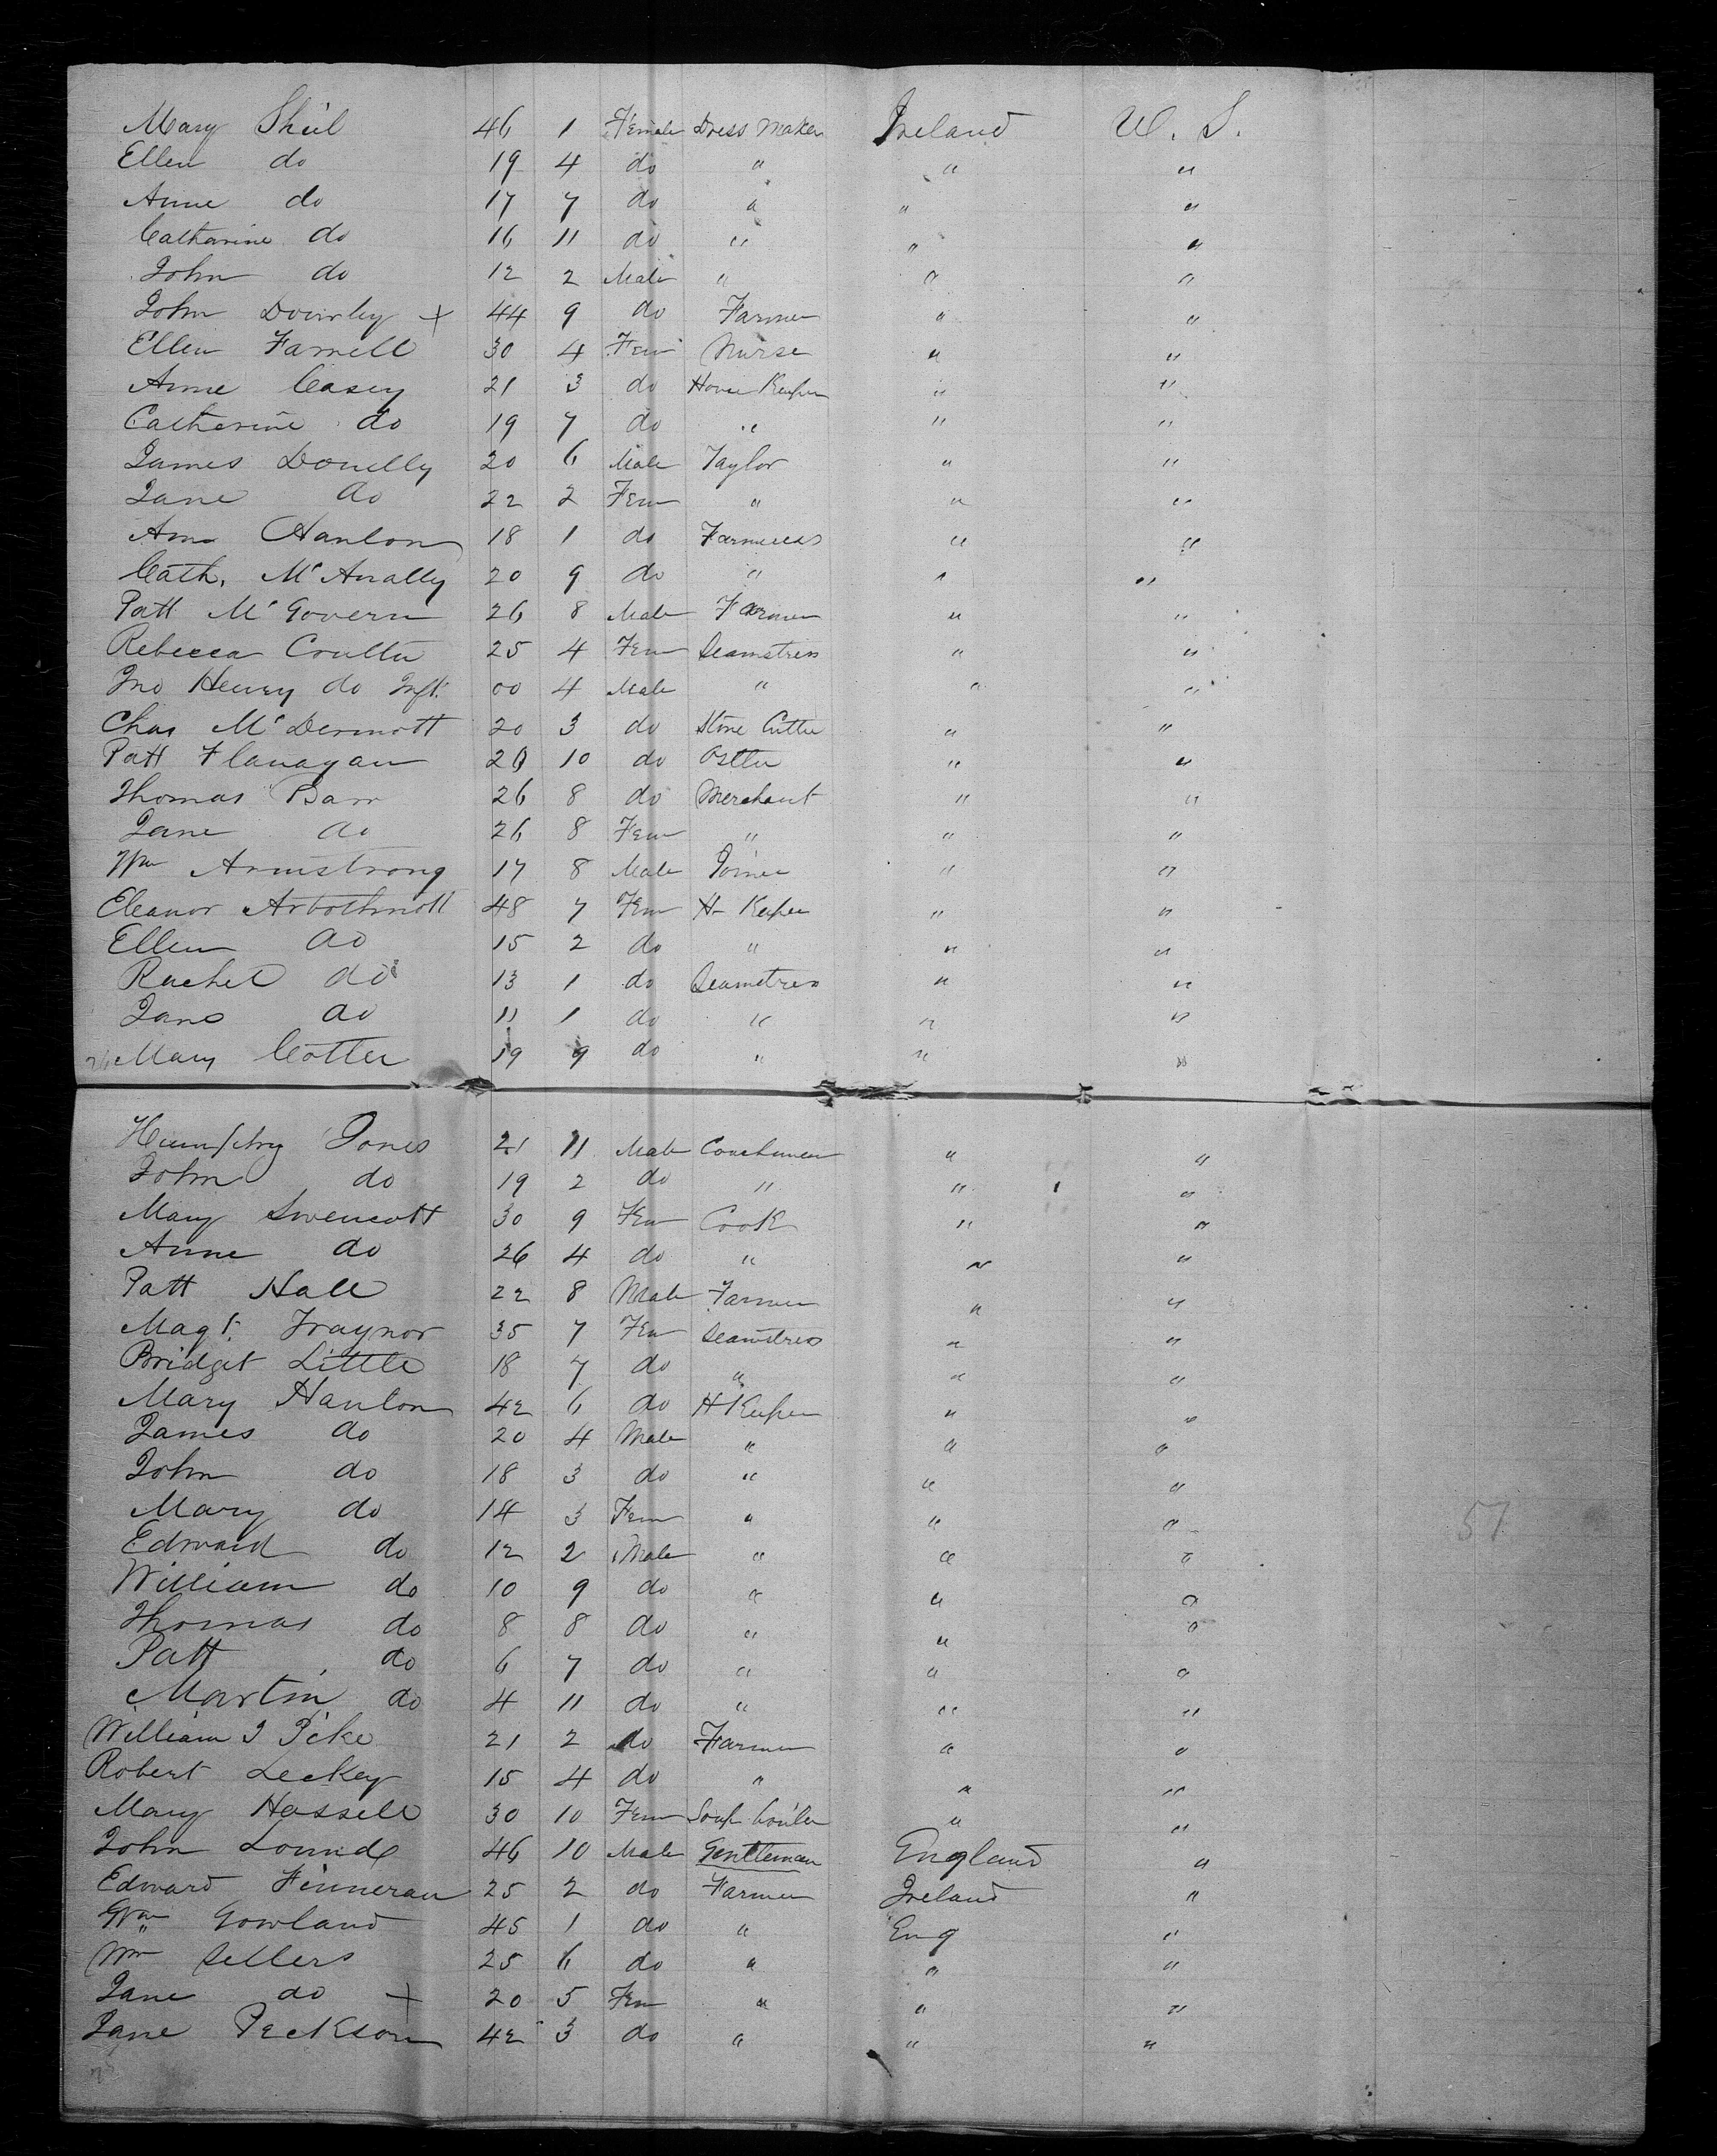 Mary Shiel 46 1 Female Dress Maker Ireland U. S.
Ellen do 19 4 do " " "
Anne do 17 7 do " " "
Catharine do 16 11 do " " "
John do 12 2 Male " " "
John + 44 9 do Farmer " "
Ellen Farrell 30 4 Fem Nurse " "
Anne Casey 21 3 do House Keeper " "
Catherine do 19 7 do " " "
James Donelly 20 6 Male Taylor " "
Jane do 22 2 Fem " " "
Ann Hanlon 18 1 do Farmeress " "
Cath. McAnally 20 9 do " " "
Patt McGovern 26 8 Male Farmer " "
Rebecca Coulter 25 4 Fem Seamstress " "
Jno Henry do Inft. 00 4 Male " " "
Chas McDermott 20 3 do Stone Cutter " "
Patt Flanagan 20 10 do Ostler " "
Thomas Barr 26 8 do Merchant " "
Jane do 26 8 Fem " " "
Wm Armstrong 17 8 Male Joiner " "
Eleanor Arbothnott 48 7 Fem H- Keeper " "
Ellen do 15 2 do " " "
Rachel do 13 1 do Seamstress " "
Jane do 11 1 do " " "
Mary Cotter 19 9 do " " "
Humphry Jones 21 11 Male Coachman " "
John do 19 2 do " " "
Mary Swencott 30 9 Fem Cook " "
Anne do 26 4 do " " "
Patt Hall 22 8 Male Farmer " "
Magt. Traynor 35 7 Fem Seamstress " "
Bridget Little 18 7 do " " "
Mary Hanlon 42 6 do H Keeper " "
James do 20 4 Male " " "
John do 18 3 do " " "
Mary do 14 3 Fem " " "
Edward do 12 2 Male " " "
William do 10 9 do " " "
Thomas do 8 8 do " " "
Patt do 6 7 do " " "
Martin do 4 11 do " " "
William J Pike 21 2 do Farmer " "
Robert Leckey 15 4 do " " "
Mary Hassell 30 10 Fem Soap boiler " "
John Lound 46 10 Male Gentleman England "
Edward Finneran 25 2 do Farmer Ireland "
Wm Gowland 45 1 do " Eng "
Wm Sellers 25 6 do " " "
Jane do + 20 5 Fem " " "
Jane Peckson 42 3 do " " "
57